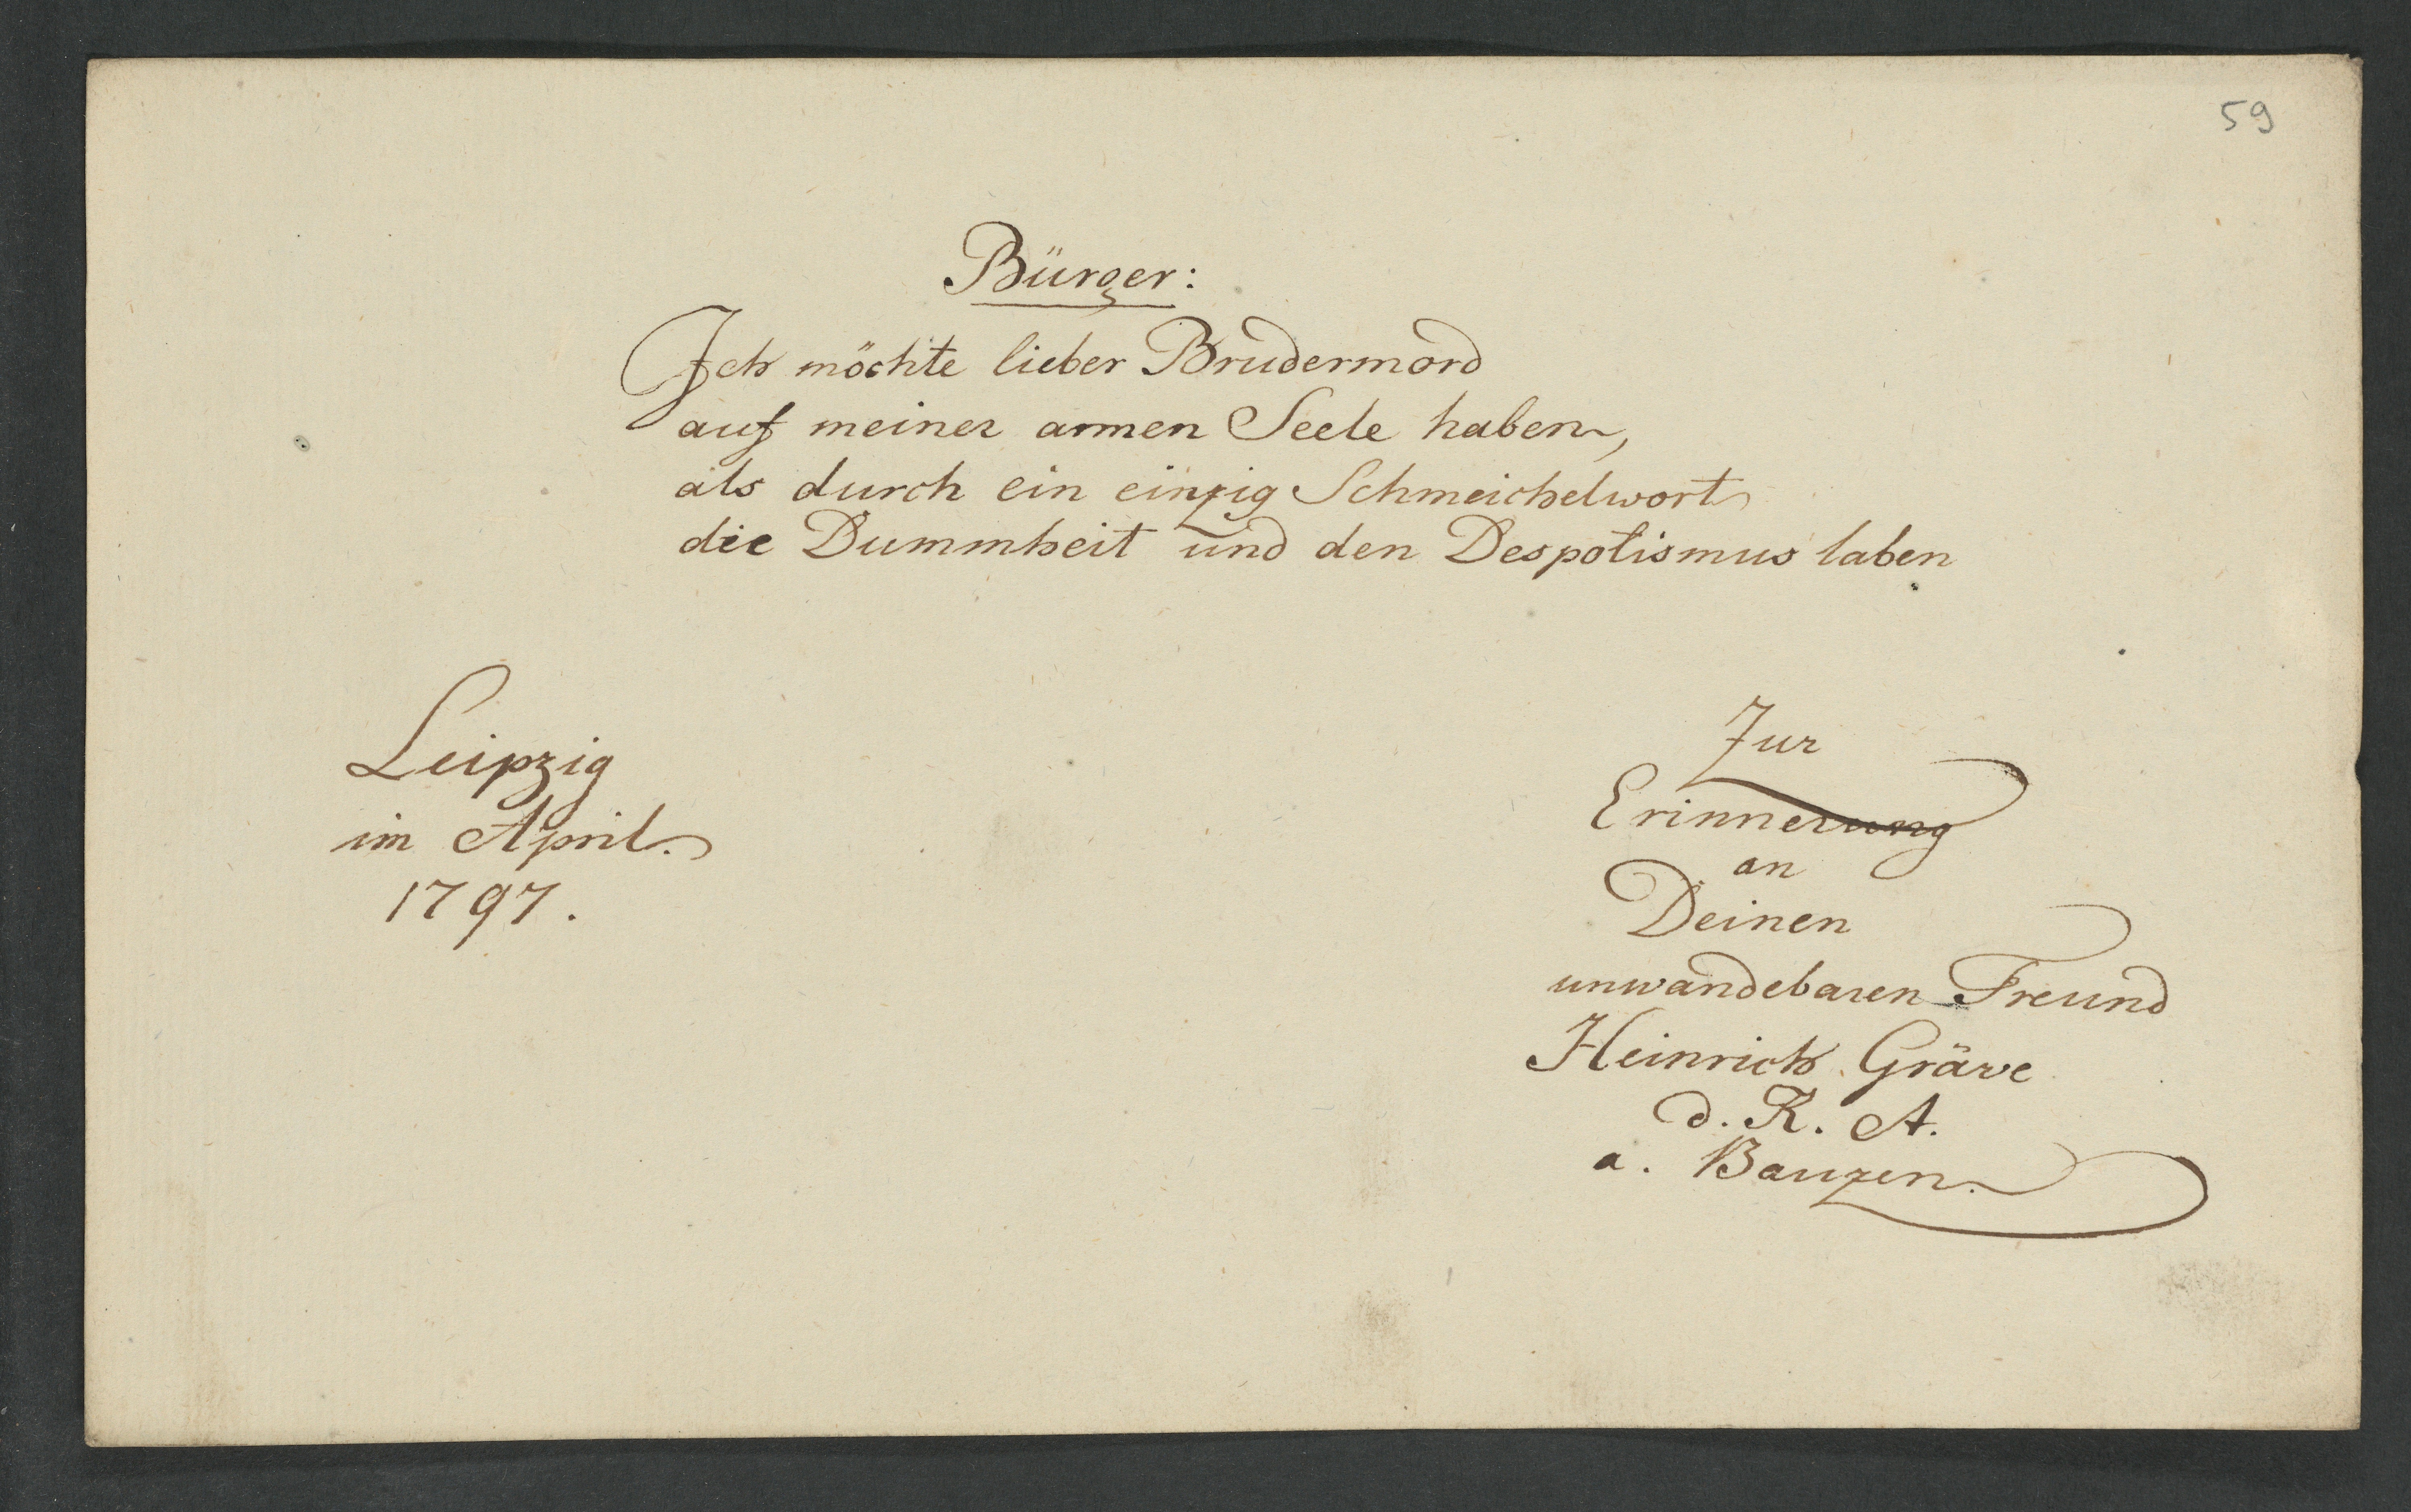 59
Bürger:
Ich möchte lieber Brudermord
auf meiner armen Seele haben,
als durch ein einzig Schmeichelwort
die Dummheit und den Despotismus laben
Leipzig
im April.
1797.
Zur
Erinnerung
an
Deinen
unwandebaren Freund
Heinrich Gräve
d. R. A.
a. Bauzen.